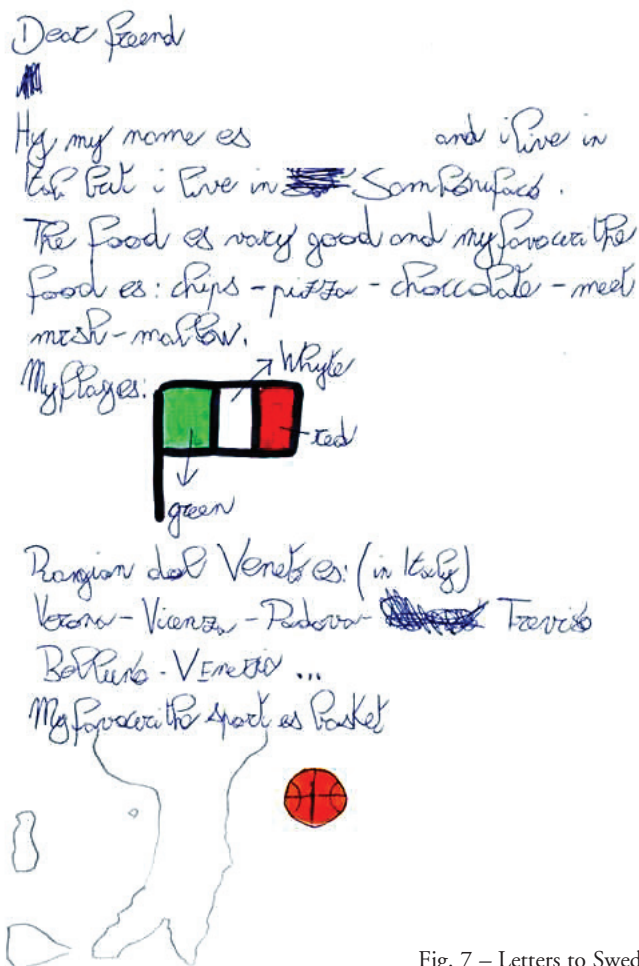 Dear freend
Hy my name es and i live in
Italy but i live in Sambonifacio.
The food es vary good and my favouri the
food es: chips - pizza - choccolate - meet
mrsh - mallow.
My flag es:
Whyte
red
green
Rangian dol Veneto es: (in Italy)
Verona - Vicenza - Padova - Treviso
Belluno - VEnezia ...
My favouri the sport es basket
Fig. 7 – Letters to Swed